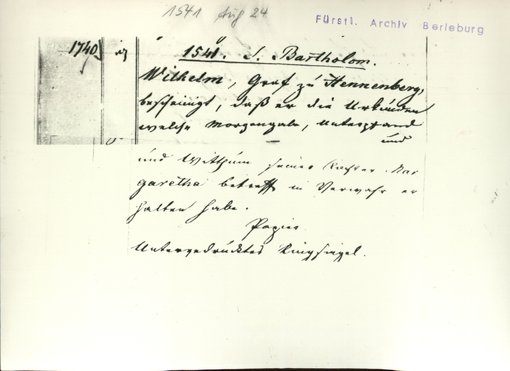 1541 Aug 24
Fürstl. Archiv Berleburg
1740
1541. S. Bartholom.
Wilhelm, Graf zu Hennenberg,
bescheinigt, daß er die Urkunden
welche Morgengabe, Unterpfand
und
und Witthum seiner Tochter Mar
garetha betreff in Verwahr er
halten habe.
Papier
Untergedrücktes Ringsiegel.